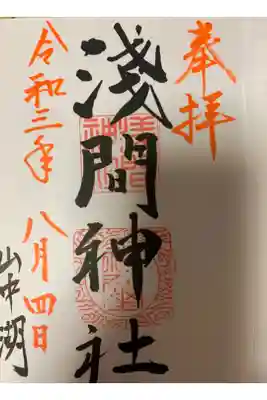 奉拝
淺間神社
令和三年
八月四日
山中湖